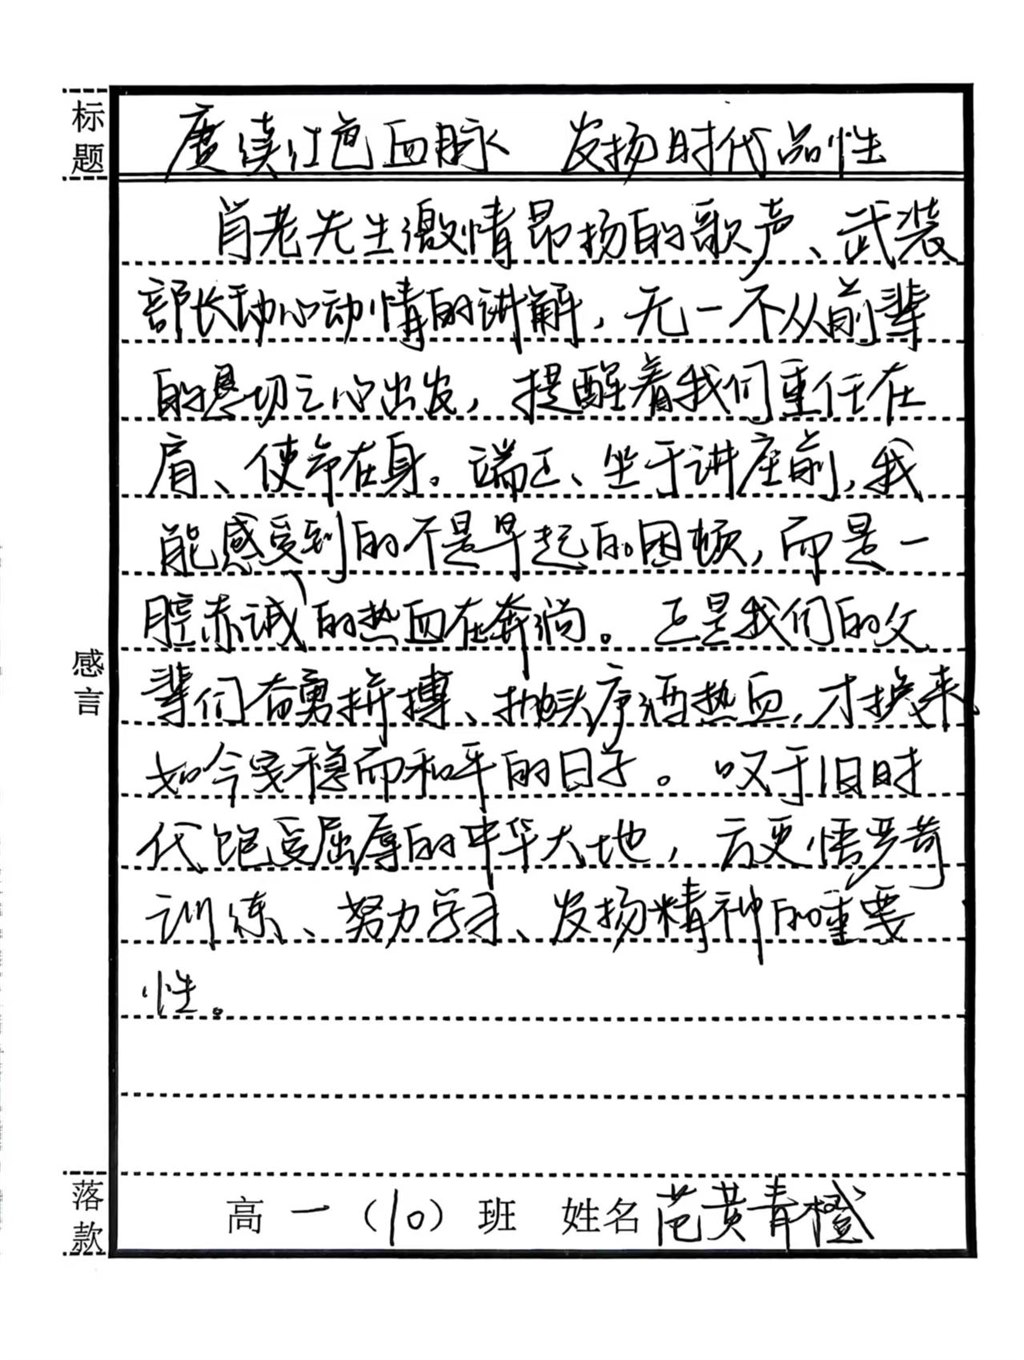 标题
赓续红色血脉 发扬时代品性
肖老先生激情昂扬的歌声、武装
部长动心动情的讲解，无一不从前辈
的恳切之心出发，提醒着我们重任在
肩、使命在身。端正、坐于讲座前，我
能感受到的不是早起的困顿，而是一
腔赤诚的热血在奔淌。正是我们的父
辈们奋勇拼搏、抛头颅洒热血，才换来
如今安稳而和平的日子。叹于旧时
代饱受屈辱的中华大地，方更悟严苛
训练、努力学习、发扬精神的重要
性。
感言
落款
高一（10）班 姓名 范黄青橙